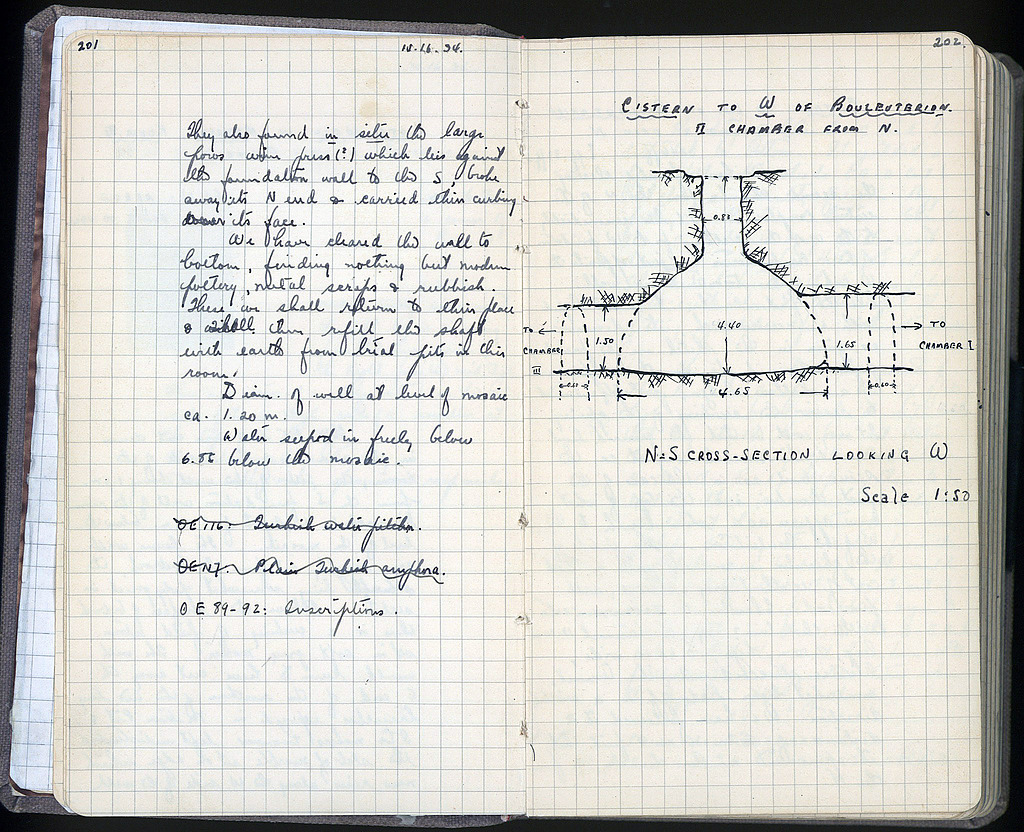 201
They also found in situ the large
poros wine press (?) which lies against
the foundation wall to the S, broke
away its N end & carried their curbing
over its face.
We have cleared the well to
bottom, finding nothing but modern
pottery, metal scraps & rubbish.
There we shall return to this place
& then refill the shaft
with earth from trial pits in this
room.
Diam. of well at level of mosaic
ca. 1.20 m.
Water seeped in freely below
6.86 below the mosaic.
OE 116: Turkish water pitcher.
OE 117: Plain Turkish amphora.
OE 89-92: Inscriptions.
202
CISTERN TO W OF BOULEUTERION.
II CHAMBER FROM N.
0.83
TO CHAMBER III
1.50
4.40
1.65
TO CHAMBER I
4.65
N-S CROSS-SECTION LOOKING W
Scale 1:50